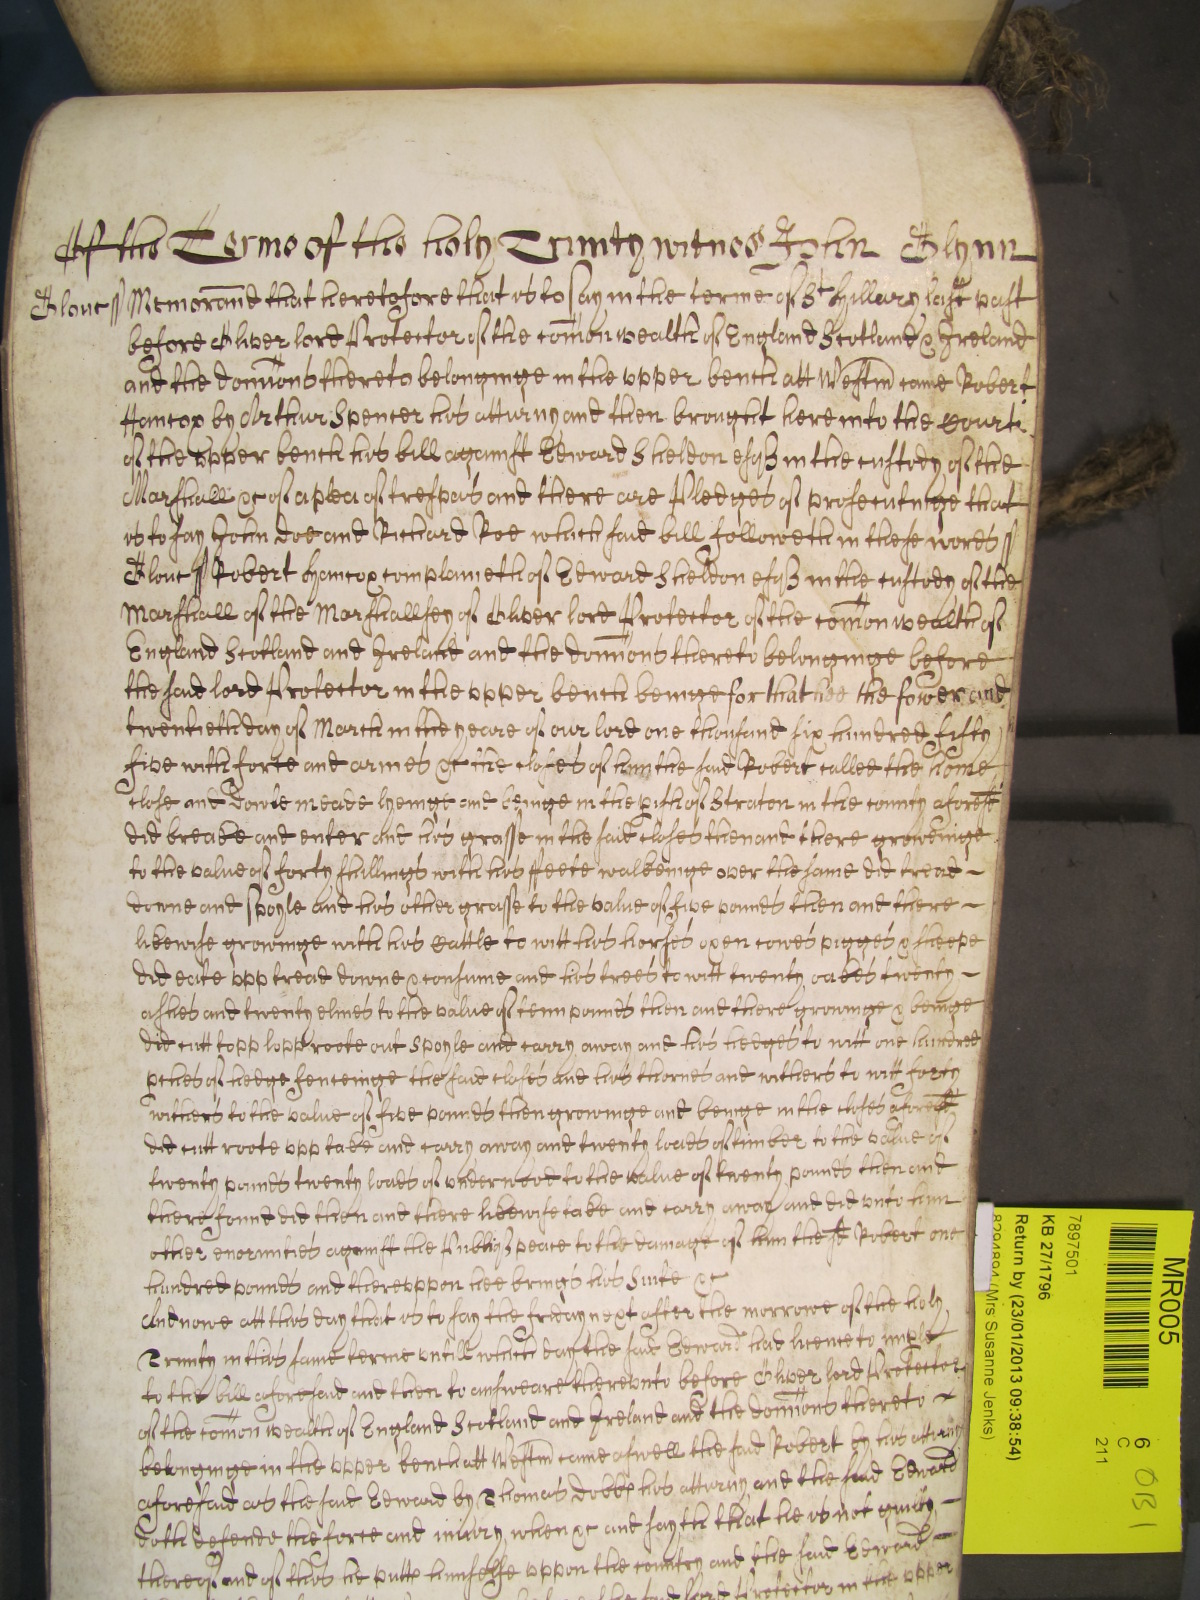 Of the Terme of the holy Trinity witnes John Glynn
Glouc ss Memorand that heretofore that is to say in the terme of St Hillary last past
before Oliver lord Protector of the comon wealth of England Scotland & Ireland
and the dominons thereto belonginge in the upper bench att Westm came Robert
Hancox by Arthur Spencer his atturny and then brought here into the Court
of the upper bench his bill against Edward Sheldon esqr in the custody of the
Marshall &c of a plea of trespas and there are Pledges of prosecutinge that
is to say John Doe and Richard Roe which said bill followeth in these words ss
Glouc ss Robert Hancox complaineth of Edward Sheldon esqr in the custody of the
Marshall of the Marshallsey of Oliver lord Protector of the comon wealth of
England Scotland and Ireland and the dominons thereto belonginge before
the said lord Protector in the upper bench beinge for that hee the fower and
twentieth day of March in the yeare of our lord one thousand six hundred fifty
five with force and armes &c the closes of him the said Robert called the home
close and Dowle meade lyeinge and beinge in the pish of Straton in the county aforesd
did breake and enter and his grasse in the said closes then and there groweinge
to the value of forty shillings with his ffeete walkeinge over the same did tread
downe and spoyle and his other grasse to the value of five pounds then and there
likewise growinge with his Cattle to witt his horses oxen cowes pigges & sheepe
did eate upp tread downe & consume and his trees to witt twenty oakes twenty
ashes and twenty elmes to the value of tenn pounds then and there growinge & beinge
did cutt topp lopp roote out spoyle and carry away and his hedges to witt one hundred
pches of hedge fenceinge the said closes and his thornes and withers to witt forty
withers to the value of five pounds then growinge and beinge in the closes aforesd
did cutt roote upp take and carry away and twenty loads of timber to the value of
twenty pounds twenty loads of underwood to the value of twenty pounds then and
there found did then and there likewise take and carry away and did unto him
other enormities against the Publiq peace to the damage of him the sd Robert one
hundred pounds and thereuppon hee brings his suite &c
And nowe att this day that is to say the friday next after the morrowe of the holy
Trinity in this same terme untill which day the said Edward had licence to imple
to the bill aforesaid and then to answeare thereunto before Oliver lord Protector
of the comon wealth of England Scotland and Ireland and the dominons thereto
belonginge in the upper bench att Westm came aswell the said Robert by his atturny
aforesaid as the said Edward by Thomas Dobbs his atturny and the said Edward
doth defende the force and iniury when &c and sayth that he is not guilty
thereof and of this he putts himselfe uppon the country and the said Edward
lord Protector in the upper
MR005
6
C
211
OB 1
7897501
KB 27/1796
Return by (23/01/2013 09:38:54)
8294894 (Mrs Susanne Jenks)